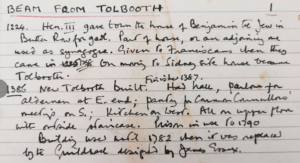 BEAM FROM TOLBOOTH 1
1224. Hen. III gave town the house of Benjamin the Jew in
Butter Row for gaol. Part of house, or an adjoining one
used as synagogue. Given to Franciscans when they
came in On moving to Sidney site house became
Tolbooth. Finished 1387.
1386 New Tolbooth built. Has hall, parlour for
aldermen at E. end; pantry for Common Councillors'
meeting, on S.; Kitchen on West. All on upper floor
with outside staircase. Prison in use to 1790
Building used until 1782 when it was replaced
by the Guildhall designed by James Essex.